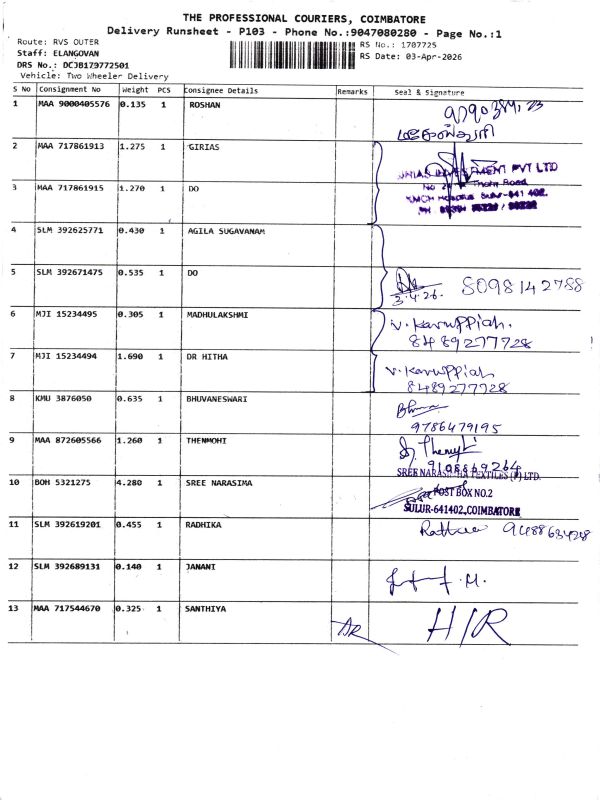 THE PROFESSIONAL COURIERS, COIMBATORE
Delivery Runsheet - P103 - Phone No.:9047080280 - Page No.:1
Route: RVS OUTER
RS No.: 1707725
Staff: ELANGOVAN
RS Date: 03-Apr-2026
DRS No.: DCJB179772501
Vehicle: Two Wheeler Delivery
S No Consignment No Weight PCS Consignee Details Remarks Seal & Signature
1 MAA 9000405576 0.135 1 ROSHAN
2 MAA 717861913 1.275 1 GIRIAS
PVT LTD
3 MAA 717861915 1.270 1 DO
4 SLM 392625771 0.430 1 AGILA SUGAVANAM
5 SLM 392671475 0.535 1 DO
3.4.26. 8098142788
6 MJI 15234495 0.305 1 MADHULAKSHMI V. Karuppiah.
8489277728
7 MJI 15234494 1.690 1 DR HITHA V. Karuppiah
8489277728
8 KMU 3876050 0.635 1 BHUVANESWARI Bhuva
9786479195
9 MAA 872605566 1.260 1 THENMOHI
9108869264
SREE NARASIMHA TEXTILES (P) LTD.
10 BOH 5321275 4.280 1 SREE NARASIMA POST BOX NO.2
SULUR-641402,COIMBATORE
11 SLM 392619201 0.455 1 RADHIKA
12 SLM 392689131 0.140 1 JANANI
13 MAA 717544670 0.325 1 SANTHIYA H/R